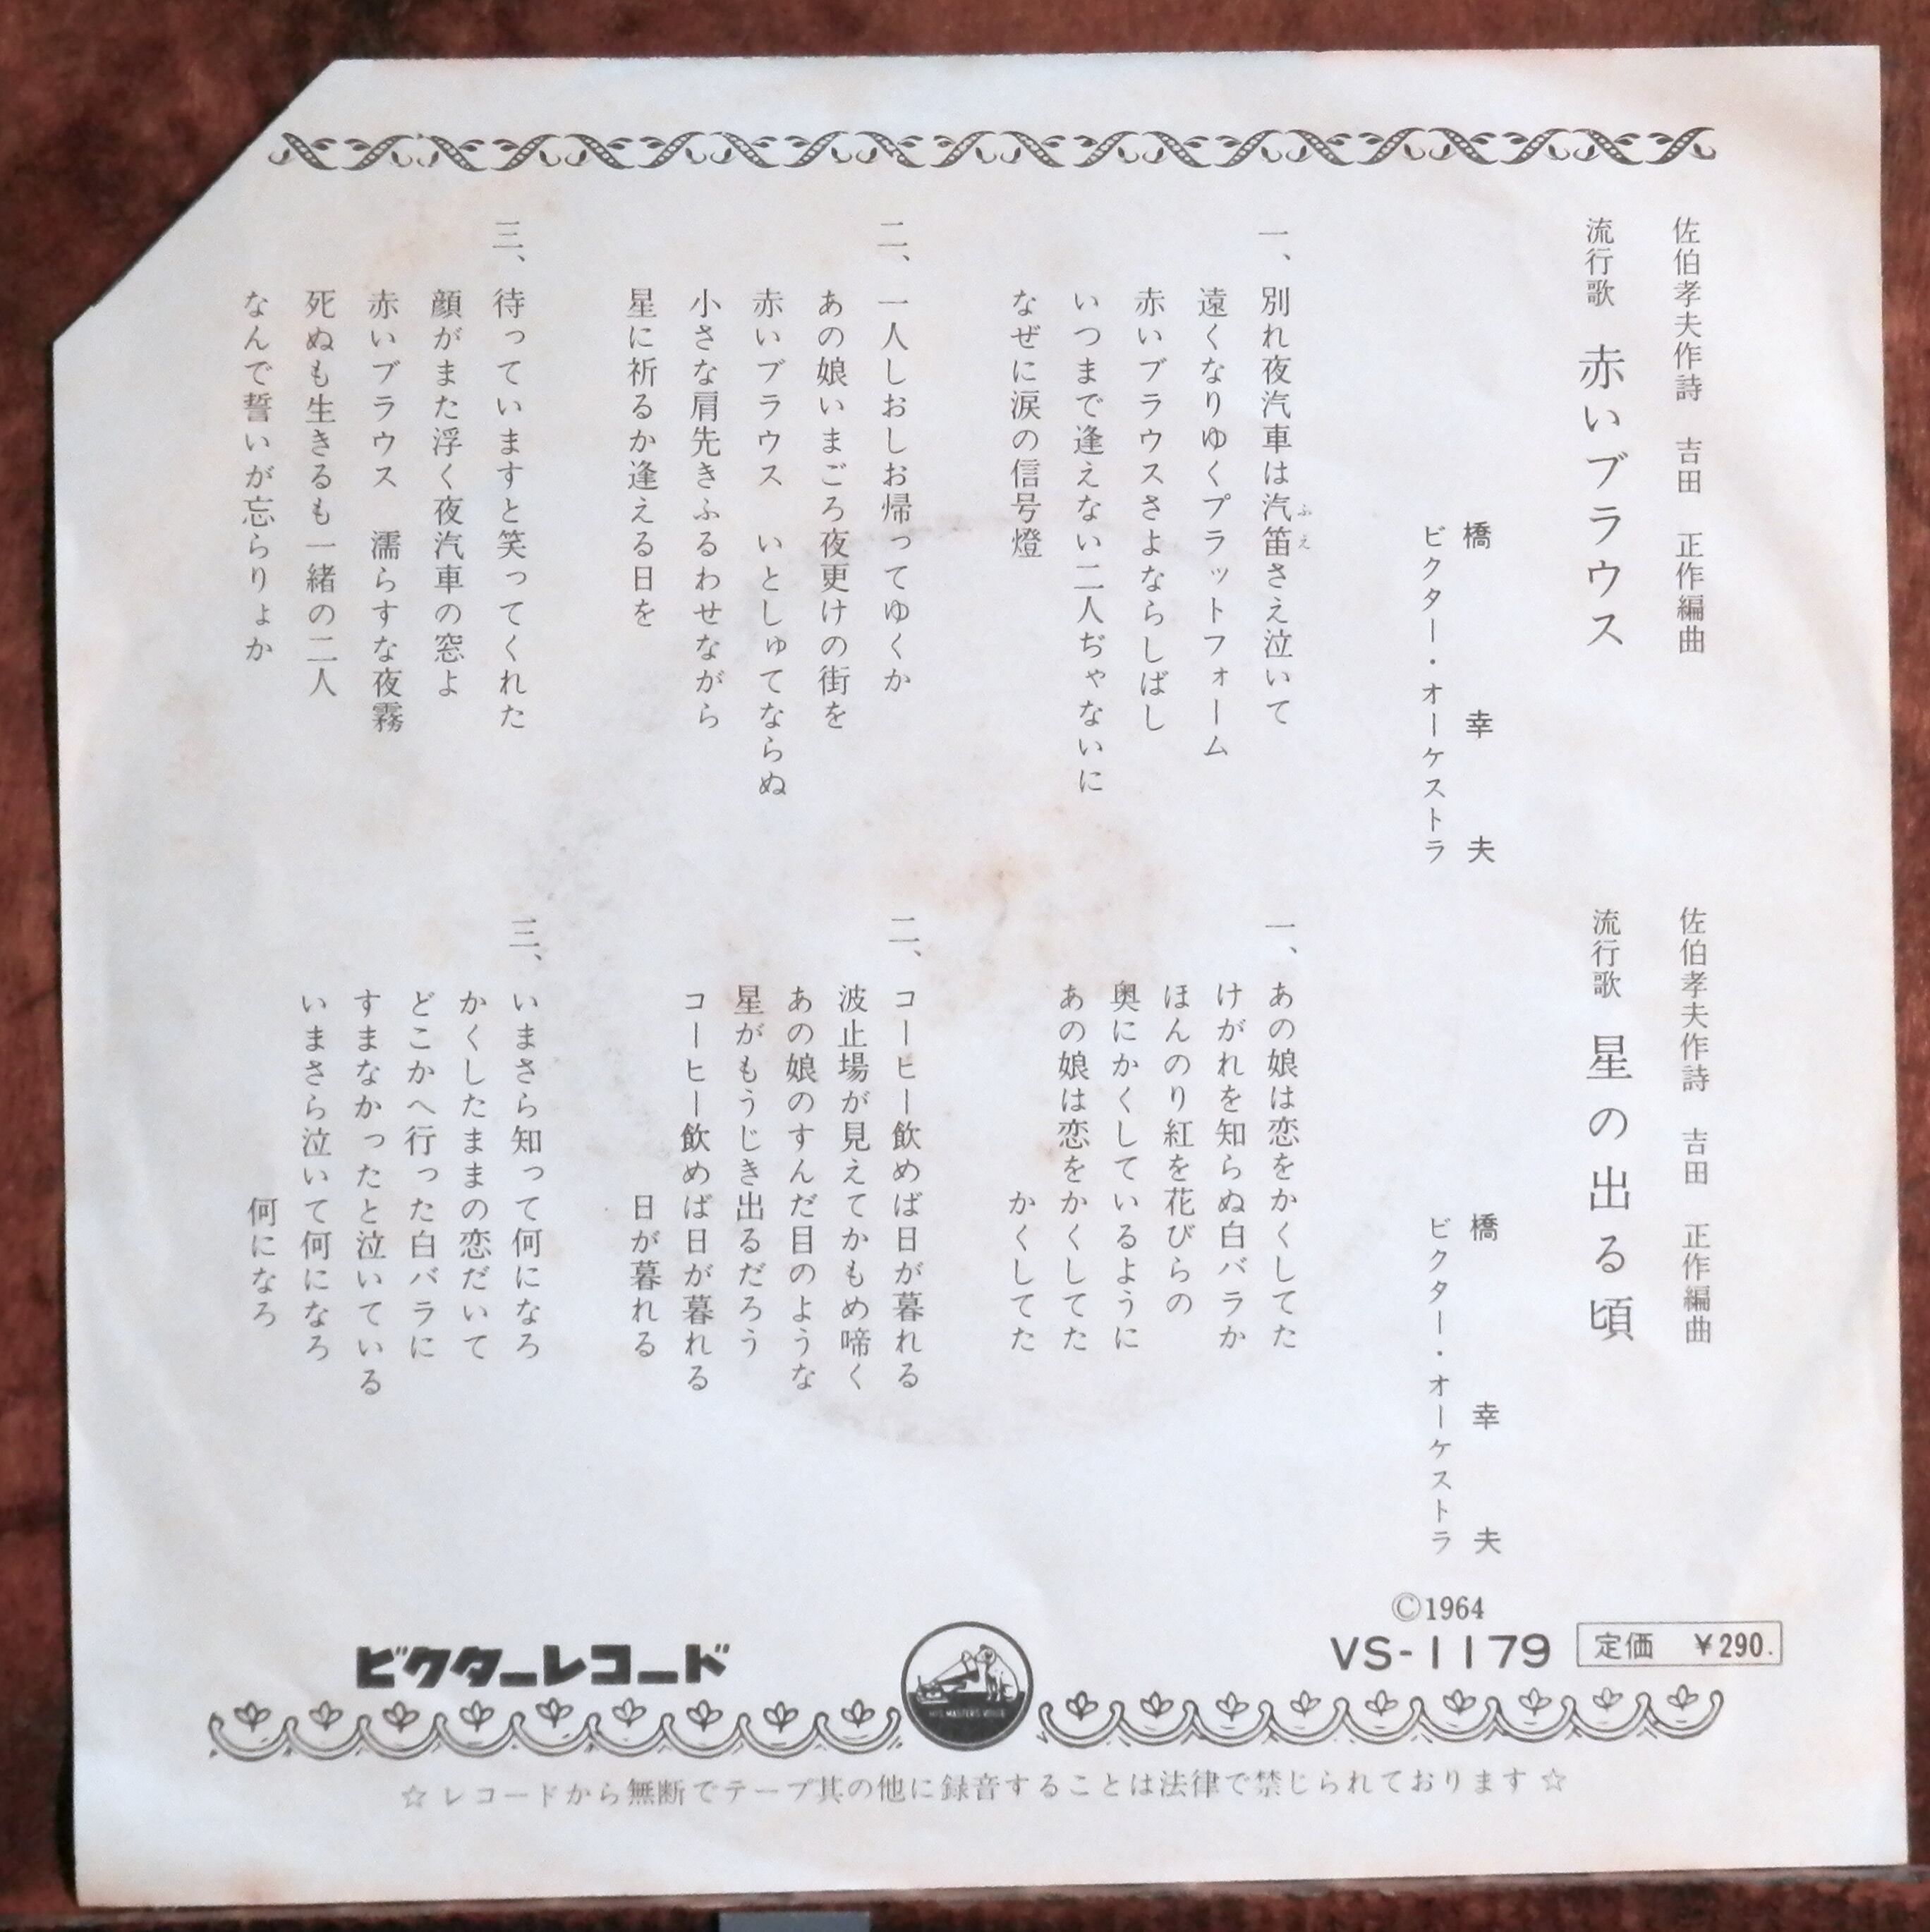 佐伯孝夫作詩　吉田　正作編曲
流行歌　赤いブラウス
橋幸夫
ビクター・オーケストラ
一、別れ夜汽車は汽笛さえ泣いて
ふえ
遠くなりゆくプラットフォーム
赤いブラウスさよならしばし
いつまで逢えない二人ぢゃないに
なぜに涙の信号燈
二、一人しおしお帰ってゆくか
あの娘いまごろ夜更けの街を
赤いブラウス　いとしゅてならぬ
小さな肩先きふるわせながら
星に祈るか逢える日を
三、待っていますと笑ってくれた
顔がまた浮く夜汽車の窓よ
赤いブラウス　濡らすな夜霧
死ぬも生きるも一緒の二人
なんで誓いが忘らりょか
佐伯孝夫作詩　吉田　正作編曲
流行歌　星の出る頃
橋幸夫
ビクター・オーケストラ
一、あの娘は恋をかくしてた
けがれを知らぬ白バラか
ほんのり紅を花びらの
奥にかくしているように
あの娘は恋をかくしてた
かくしてた
二、コーヒー飲めば日が暮れる
波止場が見えてかもめ啼く
あの娘のすんだ目のような
星がもうじき出るだろう
コーヒー飲めば日が暮れる
日が暮れる
三、いまさら知って何になろ
かくしたままの恋だいて
どこかへ行った白バラに
すまなかったと泣いている
いまさら泣いて何になろ
何になろ
©1964
VS-1179
定価　¥290.
ビクターレコード
HIS MASTERS VOICE
☆レコードから無断でテープ其の他に録音することは法律で禁じられております☆